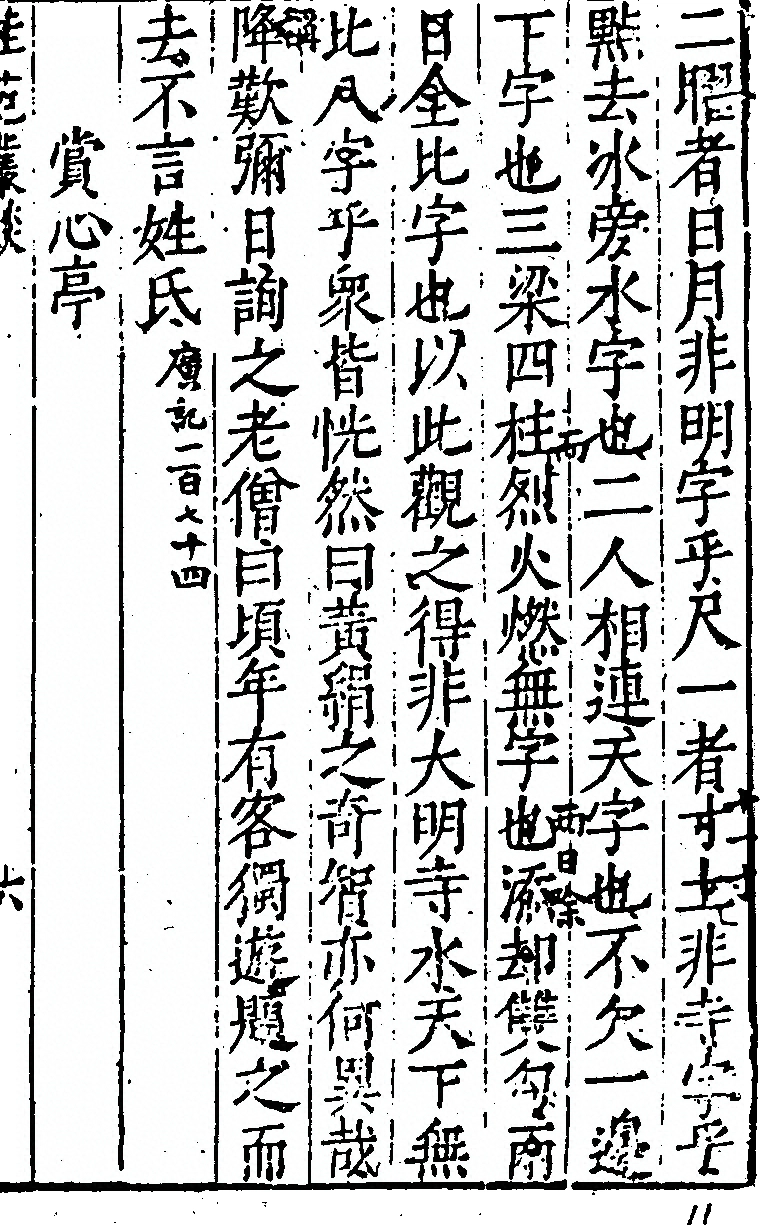 二曜者日月非明字乎尺一者寸土非寺字乎
點去冰旁水字也二人相連天字也不欠一邊
下字也三梁四柱烈火燃無字也添却雙勾兩
日全比字也以此觀之得非大明寺水天下無
比八字乎衆皆恍然曰黃絹之奇智亦何異哉
降歎彌日詢之老僧曰頃年有客獨遊題之而
去不言姓氏廣記一百七十四
賞心亭
六
11